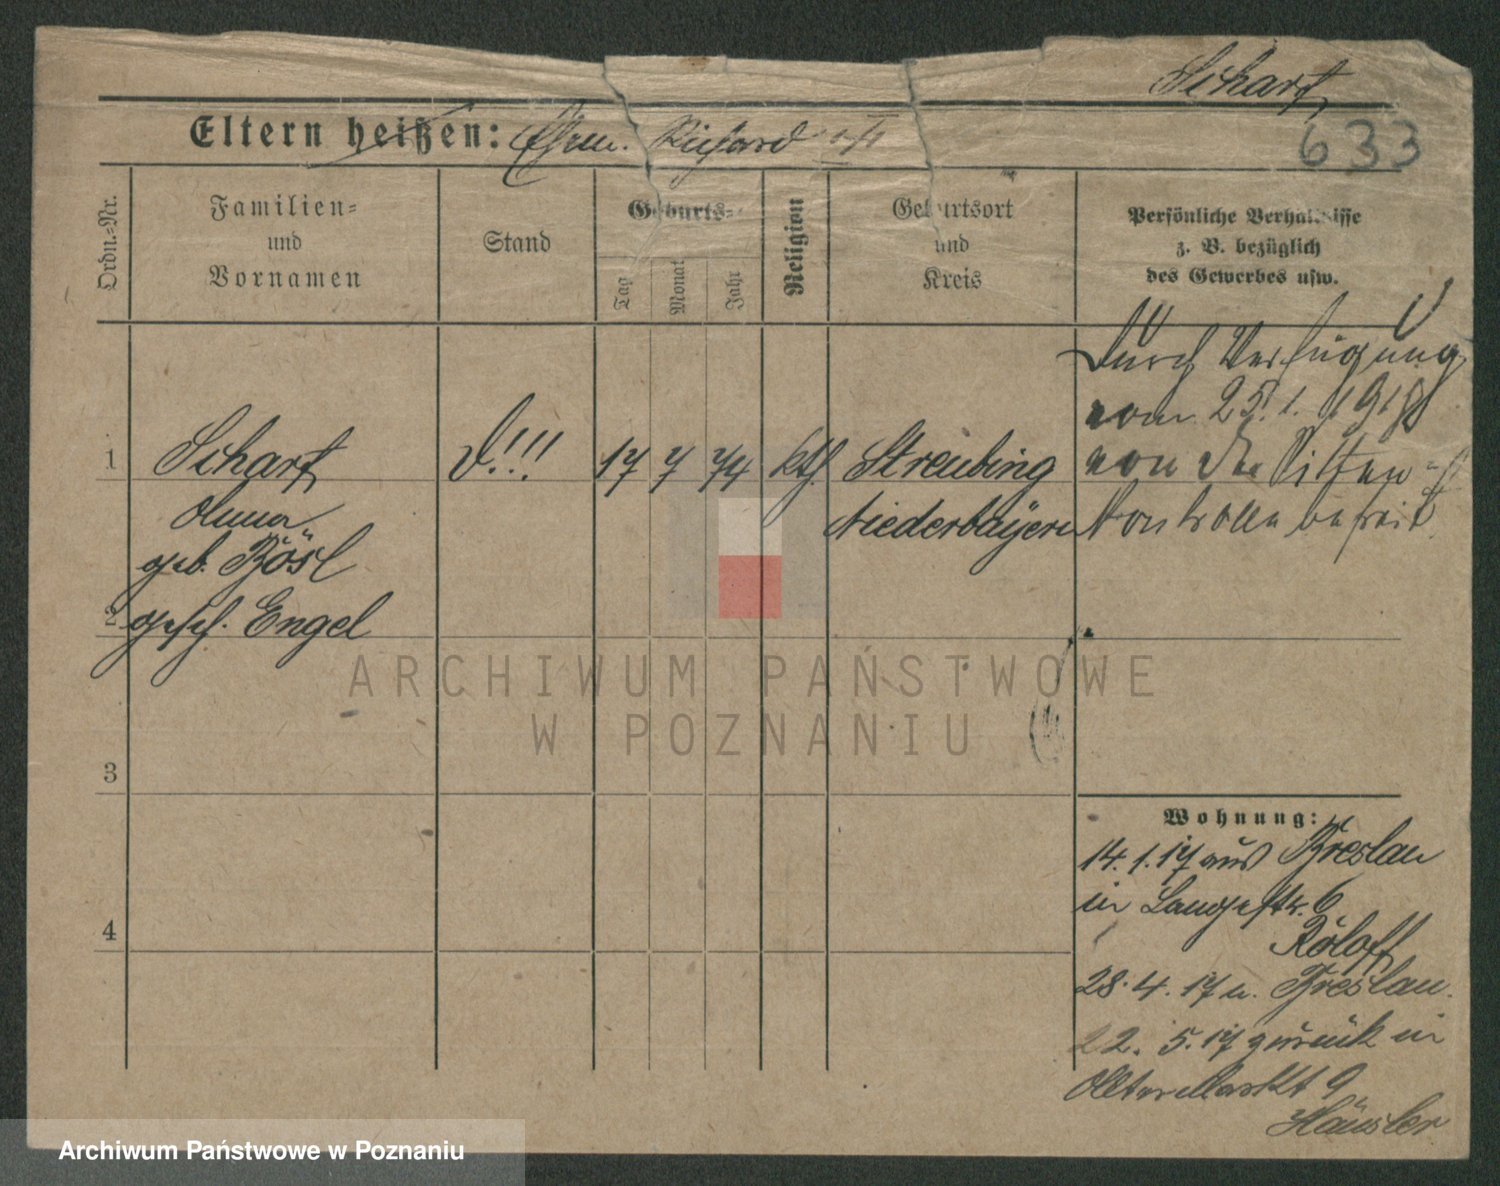 Scharf
633
Eltern heißen: Ehem. Richard
Ordn.-Nr.
Familien-
und
Vornamen
Stand
Geburts-
Tag
Monat
Jahr
Religion
Geburtsort
und
Kreis
Persönliche Verhältnisse
z. B. bezüglich
des Gewerbes usw.
1
Scharf
Anna
geb. Bösl
2
gesch. Engel
D!!!
17 7 74
kth.
Streubing
Niederbayern
Durch Verfügung
vom 25.1.1918
von der Sitten-
kontrolle befreit.
3
4
Wohnung:
14.1.17 aus Breslau
in Langestr. 6
Röloff
28.4.17 n. Breslau.
22.5.17 zurück in
Alter Markt 9
Häusler
ARCHIWUM PAŃSTWOWE
W POZNANIU
Archiwum Państwowe w Poznaniu